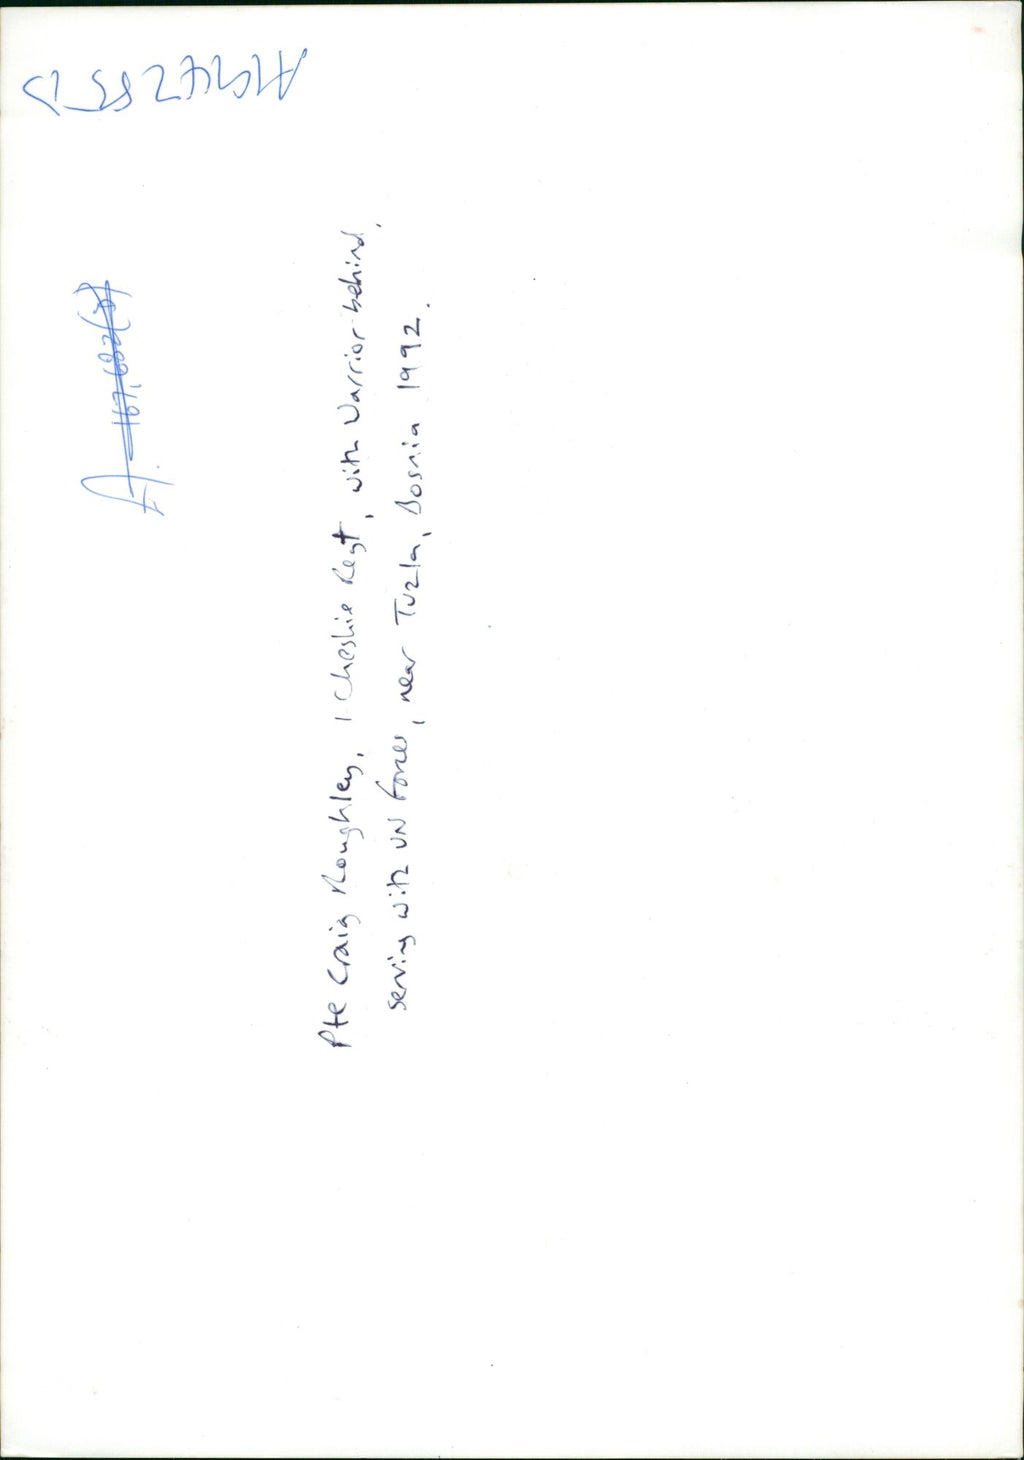 Pte Craig Roughley, 1 Cheshire Regt, with Warrior behind,
serving with UN forces, near Tuzla, Bosnia 1992.